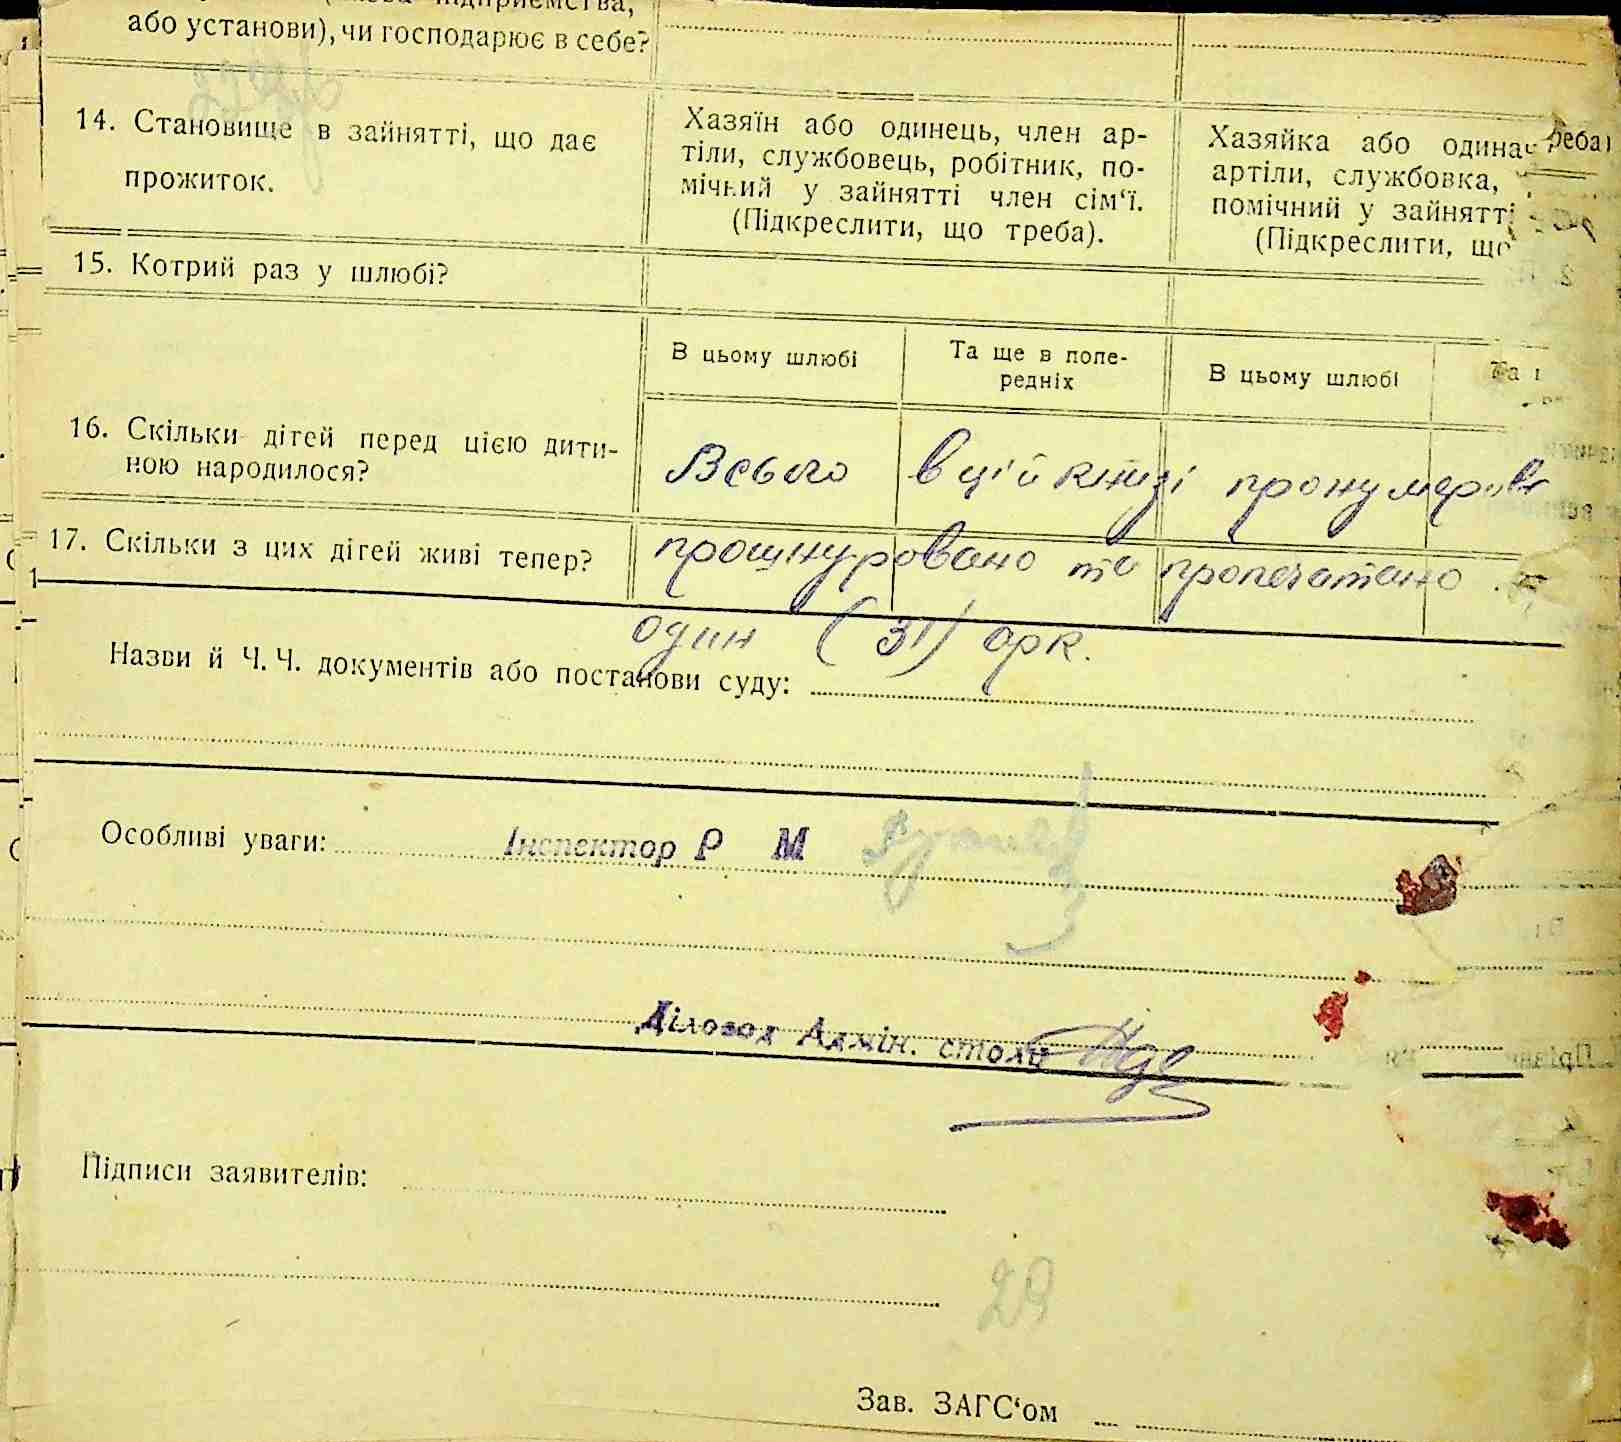 або установи), чи господарює в себе?
14. Становище в зайнятті, що дає
прожиток.
Хазяїн або одинець, член ар-
тіли, службовець, робітник, по-
мічний у зайнятті член сім‘ї.
(Підкреслити, що треба).
Хазяйка або
артіли, службовка,
помічний у зайнятті
(Підкреслити, що
15. Котрий раз у шлюбі?
В цьому шлюбі
Та ще в попе-
редніх
В цьому шлюбі
Та
16. Скільки дітей перед цією дити-
ною народилося?
Всього в цій книзі пронумеров
17. Скільки з цих дітей живі тепер?
прошнуровано та пропечатано
один (31) арк.
Назви й Ч. Ч. документів або постанови суду:
Особливі уваги:
Інспектор Р М
Діловод Адмін. стола
Підписи заявителів:
29
Зав. ЗАГС‘ом